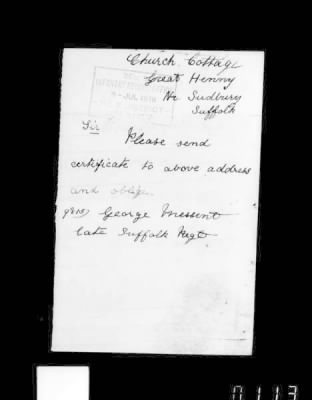 Church Cottage
Great Henny
Nr Sudbury
Suffolk
Sir
Please send
certificate to above address
and oblige
George Messent
late Suffolk Regt
0113